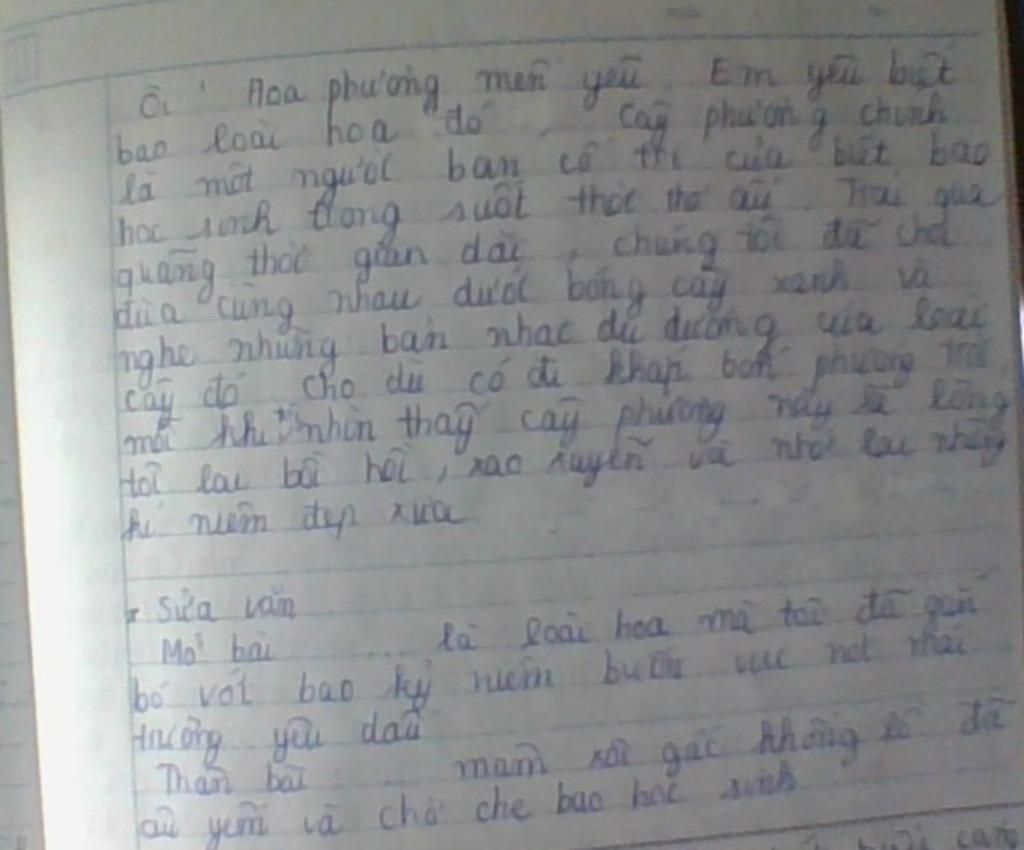 Ôi ! Hoa phượng mến yêu. Em yêu biết
bao loài hoa đó. Cây phượng chính
là một người bạn cố tri của biết bao
học sinh trong suốt thời thơ ấu. Trải qua
quãng thời gian dài, chúng tôi đã chơi
đùa cùng nhau dưới bóng cây xanh và
nghe những bản nhạc du dương của loài
cây đó. Cho dù có đi khắp bốn phương trời
mỗi khi nhìn thấy cây phượng này là lòng
tôi lại bồi hồi, xao xuyến và nhớ lại những
kỉ niệm đẹp xưa
* Sửa văn
Mở bài ... là loài hoa mà tôi đã gắn
bó với bao kỷ niệm buồn vui nơi mái
trường yêu dấu
Thân bài ... mâm xôi gấc khổng lồ đã
ấu yếm và chở che bao học sinh